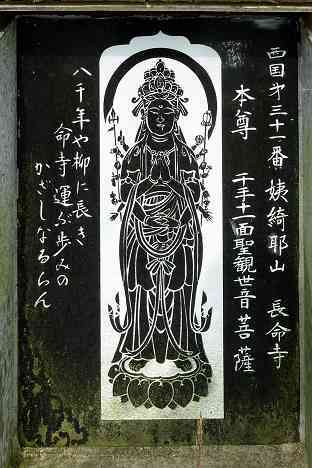 西国第三十一番 姨綺耶山 長命寺
本尊 千手十一面聖観世音菩薩
八千年や柳に長き
命寺運ぶ歩みの
かざしなるらん